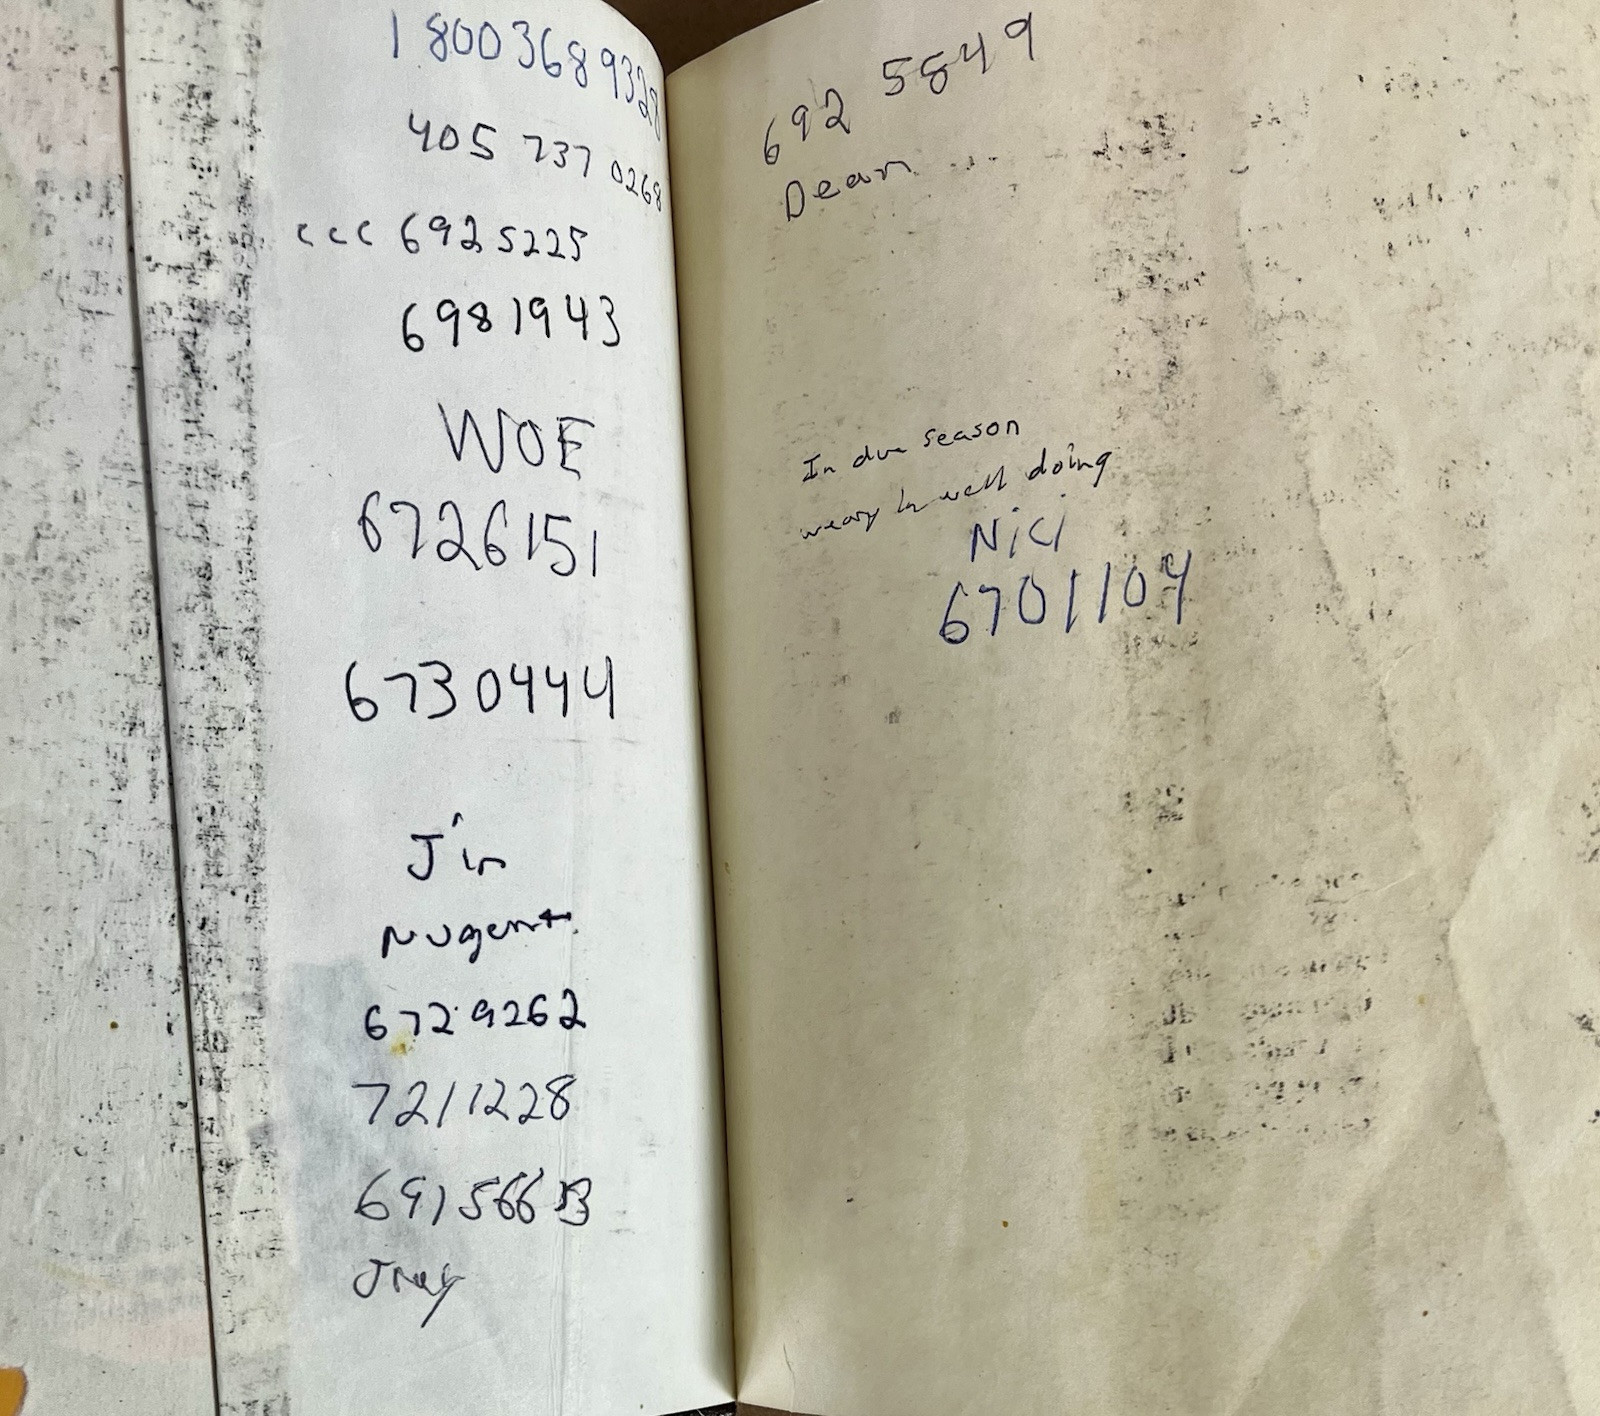 1 800 368 9328
405 737 0268
CCC 692 5225
698 1943
WOE
6726151
6730444
Jim
Nugent
672 9262
7211228
Jray
692 5849
Dean
In due season
weary in well doing
Nici
6701104